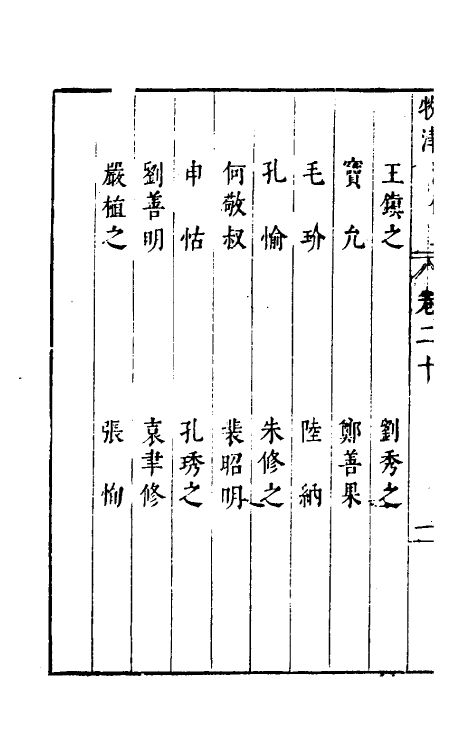 牧津
卷二十
一
王鎮之　劉秀之
寶允　鄭善果
毛玠　陸納
孔愉　朱修之
何敬叔　裴昭明
申怙　孔琇之
劉善明　袁聿修
嚴植之　張恂